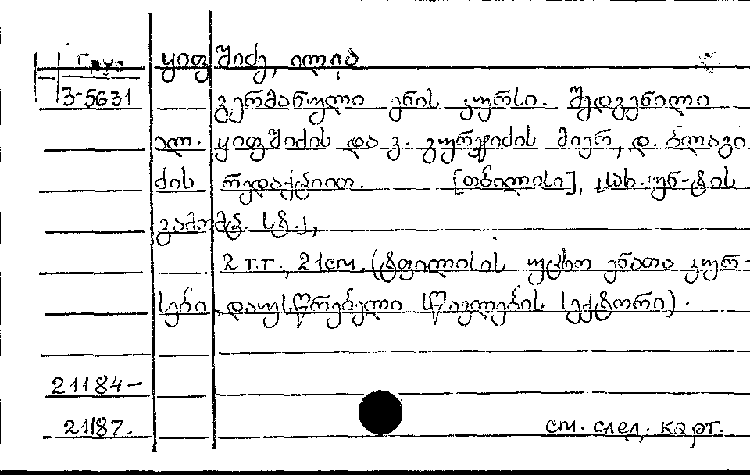 ყიფშიძე, ილია
3-5631 გერმანული ენის კურსი. შედგენილი
ილ. ყიფშიძის და გ. გურჯიძის მიერ, დ. ბლაგი
ძის რედაქციით. [თბილისი], სახ. უნ-ტის
გამომც. სტ.,
2 т.т., 21 см. (ტფილისის უცხო ენათა კურ-
სები დაუსწრებელი სწავლების სექტორი).
21184-
21187. см. след. карт.